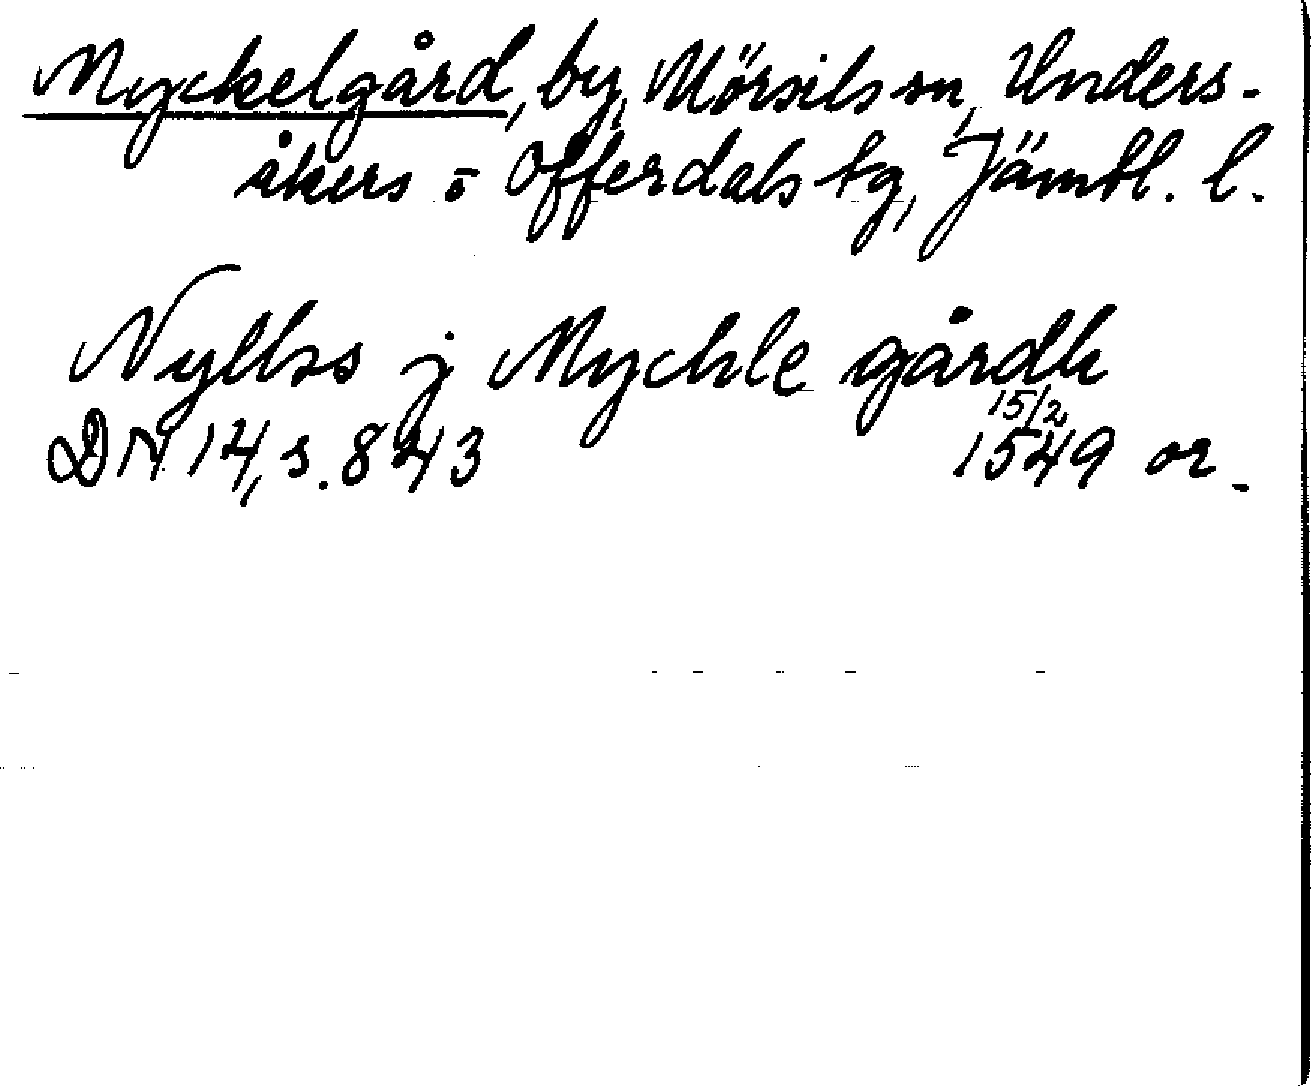 Myckelgård, by, Mörsils sn, Unders-
åkers o Offerdals tg, Jämtl. l.
Nylhss j Mychle gårdh
15/2
DN 14, s. 843 1549 or.